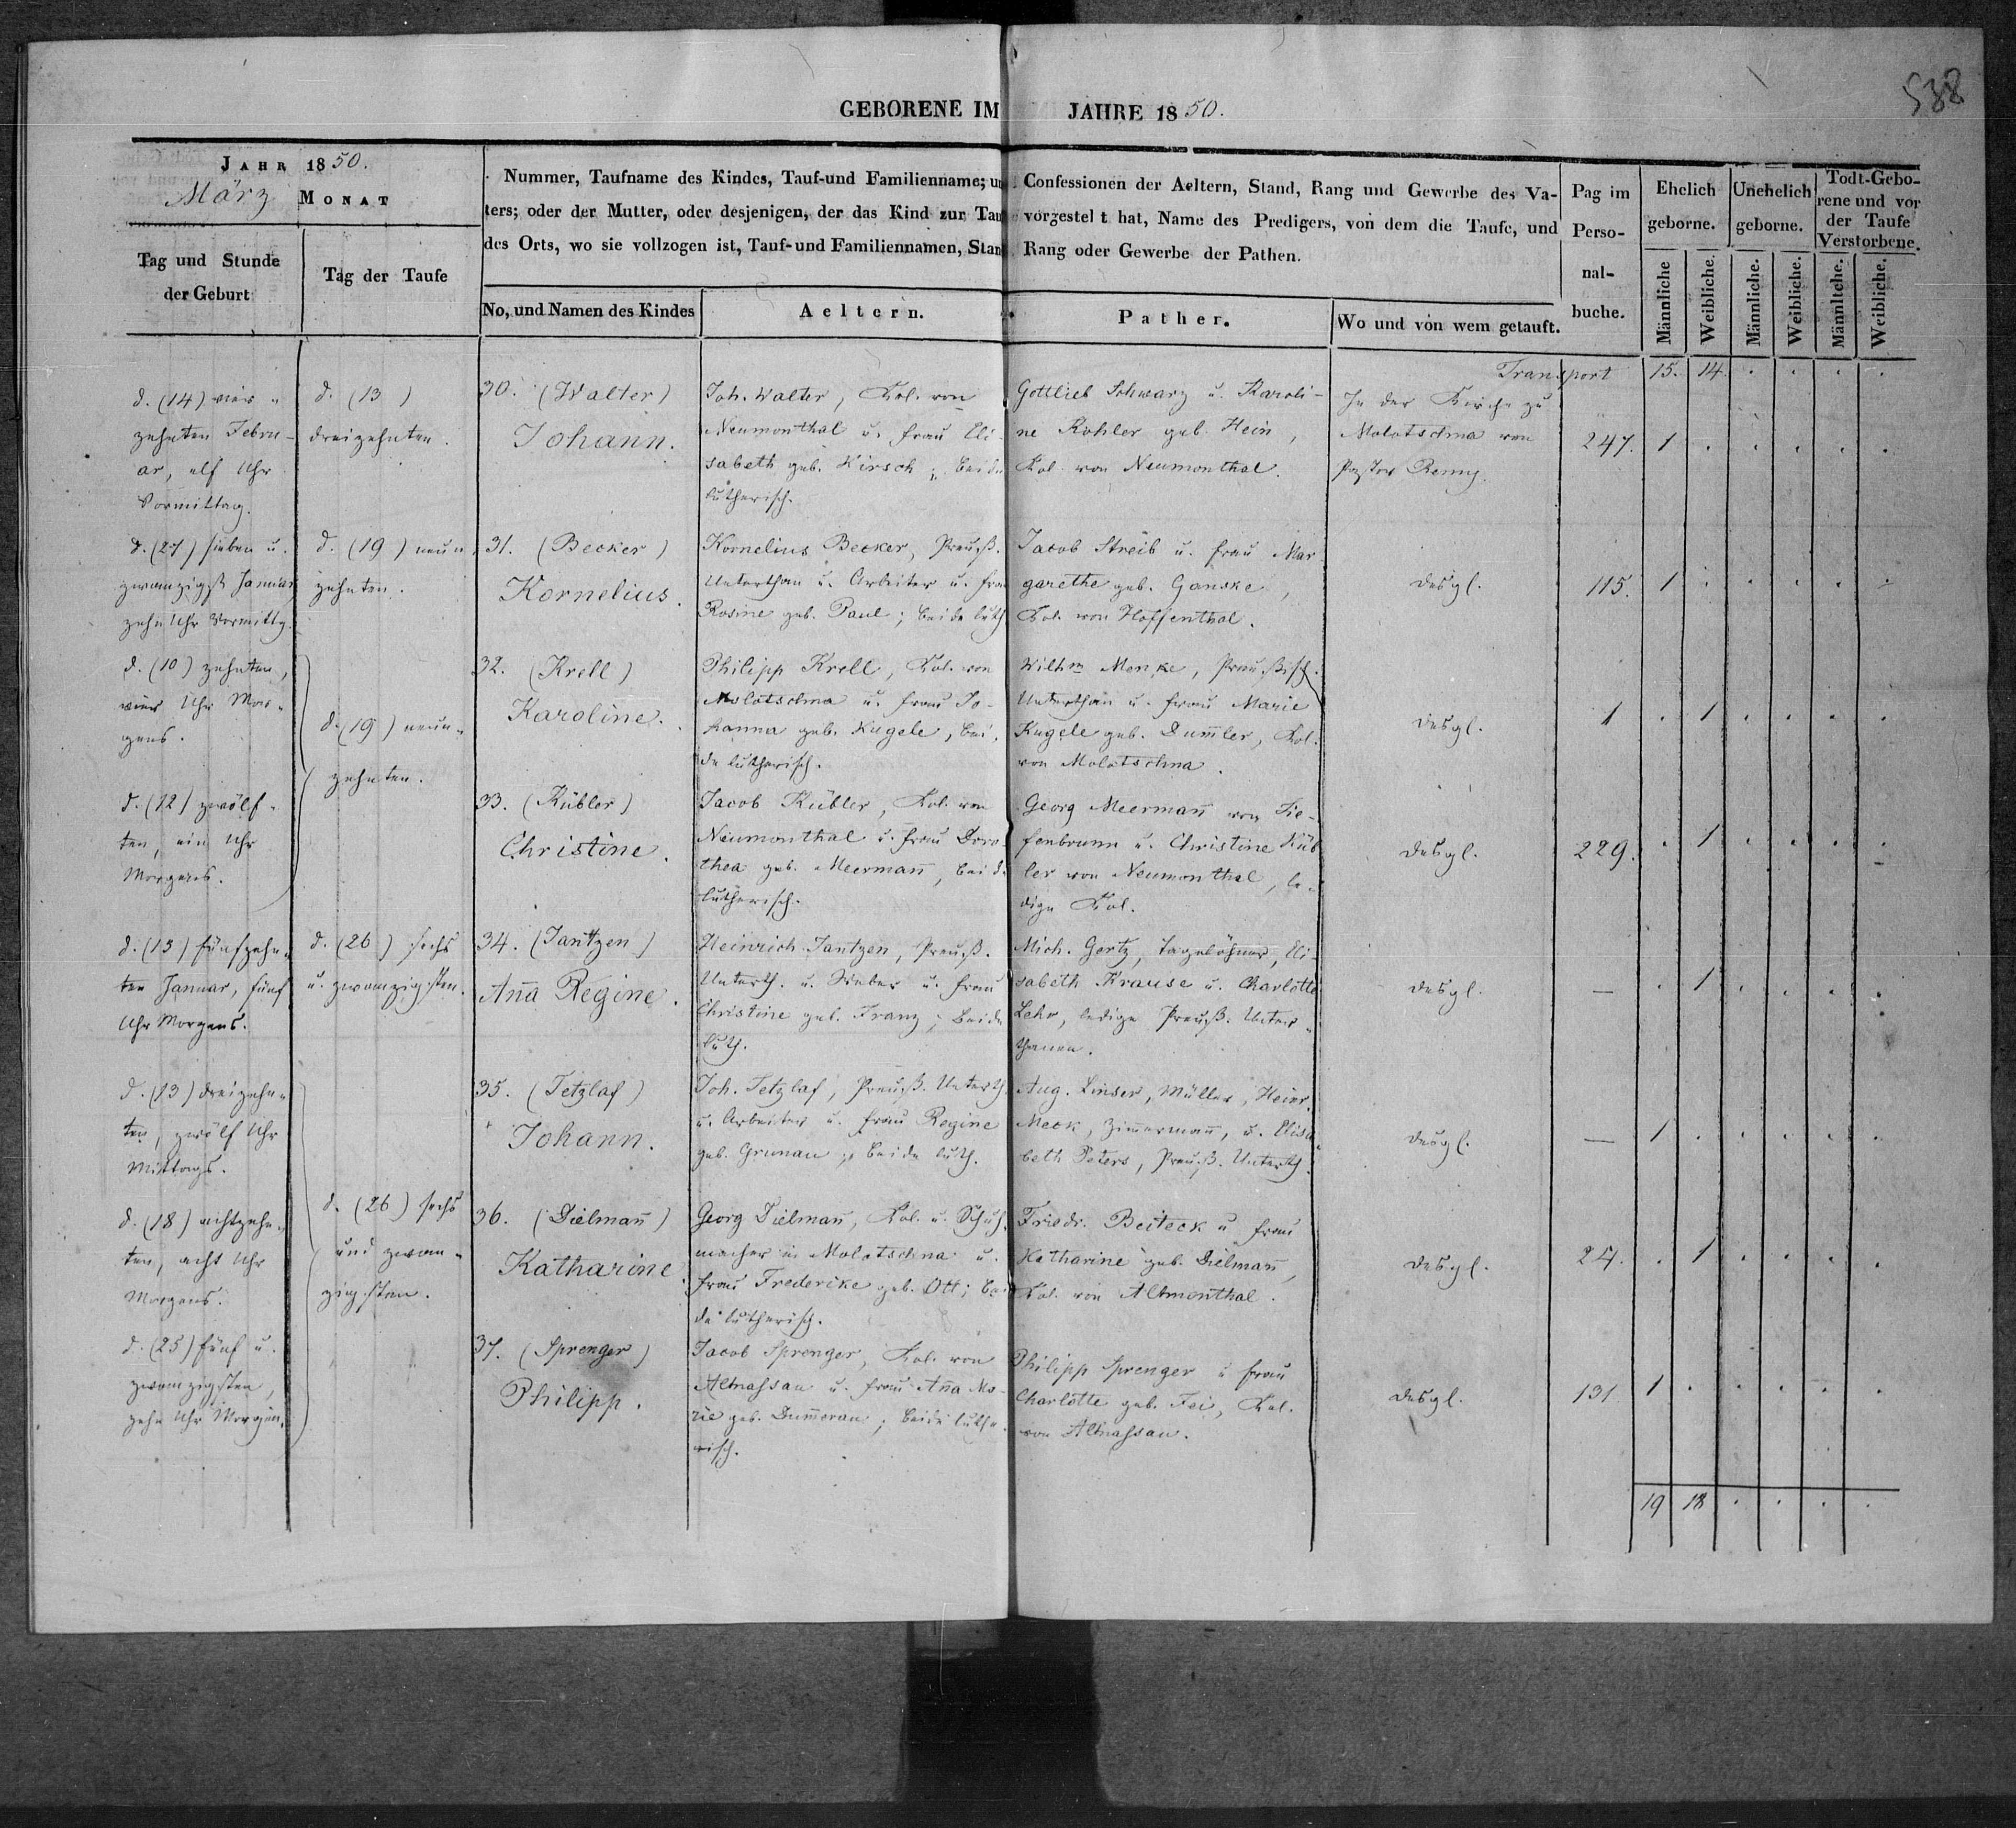 538
GEBORENE IM JAHRE 1850.
JAHR 1850.
März MONAT
Tag und Stunde
der Geburt
Tag der Taufe
Nummer, Taufname des Kindes, Tauf-und Familienname; un Confessionen der Aeltern, Stand, Rang und Gewerbe des Va-
ters; oder der Mutter, oder desjenigen, der das Kind zur Tau vorgestelt hat, Name des Predigers, von dem die Taufe, und
des Orts, wo sie vollzogen ist, Tauf-und Familiennamen, Stan Rang oder Gewerbe der Pathen.
No, und Namen des Kindes
Aeltern.
Pather.
Wo und von wem getauft.
Pag im
Perso-
nal-
buche.
Ehelich
geborne.
Unehelich
geborne.
Todt-Gebo-
rene und vor
der Taufe
Verstorbene.
Männliche
Weibliche.
Männliche.
Weibliche.
Männltche.
Weibliche.
Transport 15. 14. . . . .
d. (14) vier-
zehnten Febru-
ar, elf Uhr
Vormittag.
d. (13)
dreizehnten.
30. (Walter)
Johann.
Joh. Walter, Kol. von
Neumonthal u. Frau Eli-
sabeth geb. Kirsch; beide
lutherisch.
Gottlieb Schwarz u. Karoli-
ne Kohler geb. Hein,
Kol. von Neumonthal.
In der Kirche zu
Molotschna von
Pastor
247. 1 . . . . .
d. (27) sieben u.
zwanzigst Januar
zehn Uhr Vormittg.
d. (19) neun-
zehnten.
31. (Becker)
Kornelius.
Kornelius Becker, Preuß.
Unterthan u. Arbeiter u. Frau
Rosine geb. Paul; beide luth
Jacob Streib u. Frau Mar
garethe geb. Ganske,
Kol. von Hoffenthal.
desgl.
115. 1 . . . . .
d. (10) zehnten,
vier Uhr Mor-
gens.
d. (19) neun-
zehnten.
32. (Krell)
Karoline.
Philipp Krell, Kol. von
Molotschna u. Frau Jo-
hanna geb. Kugele, bei-
de lutherisch.
Wilhm Menke, Preußisch.
Unterthan u. Frau Marie
Kugele geb. Dum̄ler, Kol.
von Molotschna.
desgl.
1 . 1 . . . .
d. (12) zwölf-
ten, ein Uhr
Morgens.
33. (Kübler)
Christine.
Jacob Kübler, Kol. von
Neumonthal u. Frau Doro-
thea geb. Meerman̄, beide
lutherisch.
Georg Meerman̄ von Tie-
fenbrunn u. Christine Küb
ler von Neumonthal, le-
dige Kol.
desgl.
229. . 1 . . . .
d. (15) fünfzehn-
ten Januar, fünf
Uhr Morgens.
d. (26) sechs
u. zwanzigsten.
34. (Jantzen)
An̄a Regine.
Heinrich Jantzen, Preuß.
Unterth. u. Weber u. Frau
Christine geb. Franz; beide
luth.
Mich. Gertz, Tagelöhner, Eli-
sabeth Krause u. Charlotte
Lehr, ledige Preuß. Unter-
thanen.
desgl.
— . 1 . . . .
d. (13) dreizehn-
ten, zwölf Uhr
Mittags.
35. (Tetzlaf)
Johann.
Joh. Tetzlaf, Preuß. Unterth.
u. Arbeiter u. Frau Regine
geb. Grunau; beide luth.
Aug. Linser, Müller, Heinr.
Meck, Zim̄erman̄, u. Elisa
beth Peters, Preuß. Unterth.
desgl.
— 1 . . . . .
d. (18) achtzehn-
ten, acht Uhr
Morgens.
d. (26) sechs
und zwan-
zigsten.
36. (Dielman̄)
Katharine.
Georg Dielman̄, Kol. u. Schuh-
macher in Molotschna u.
Frau Frederike geb. Ott; bei
de lutherisch.
Friedr. Beiteck u Frau
Katharine geb. Dielman̄,
Kol. von Altmonthal.
desgl.
24. . 1 . . . .
d. (25) fünf u.
zwanzigsten,
zehn Uhr Morgen.
37. (Sprenger)
Philipp.
Jacob Sprenger, Kol. von
Altnassau u. Frau An̄a Ma-
rie geb. Dum̄erau; beide luthe-
risch.
Philipp Sprenger u Frau
Charlotte geb. Fei, Kol.
von Altnassau.
desgl.
131 1 . . . . .
19 18 . . . .